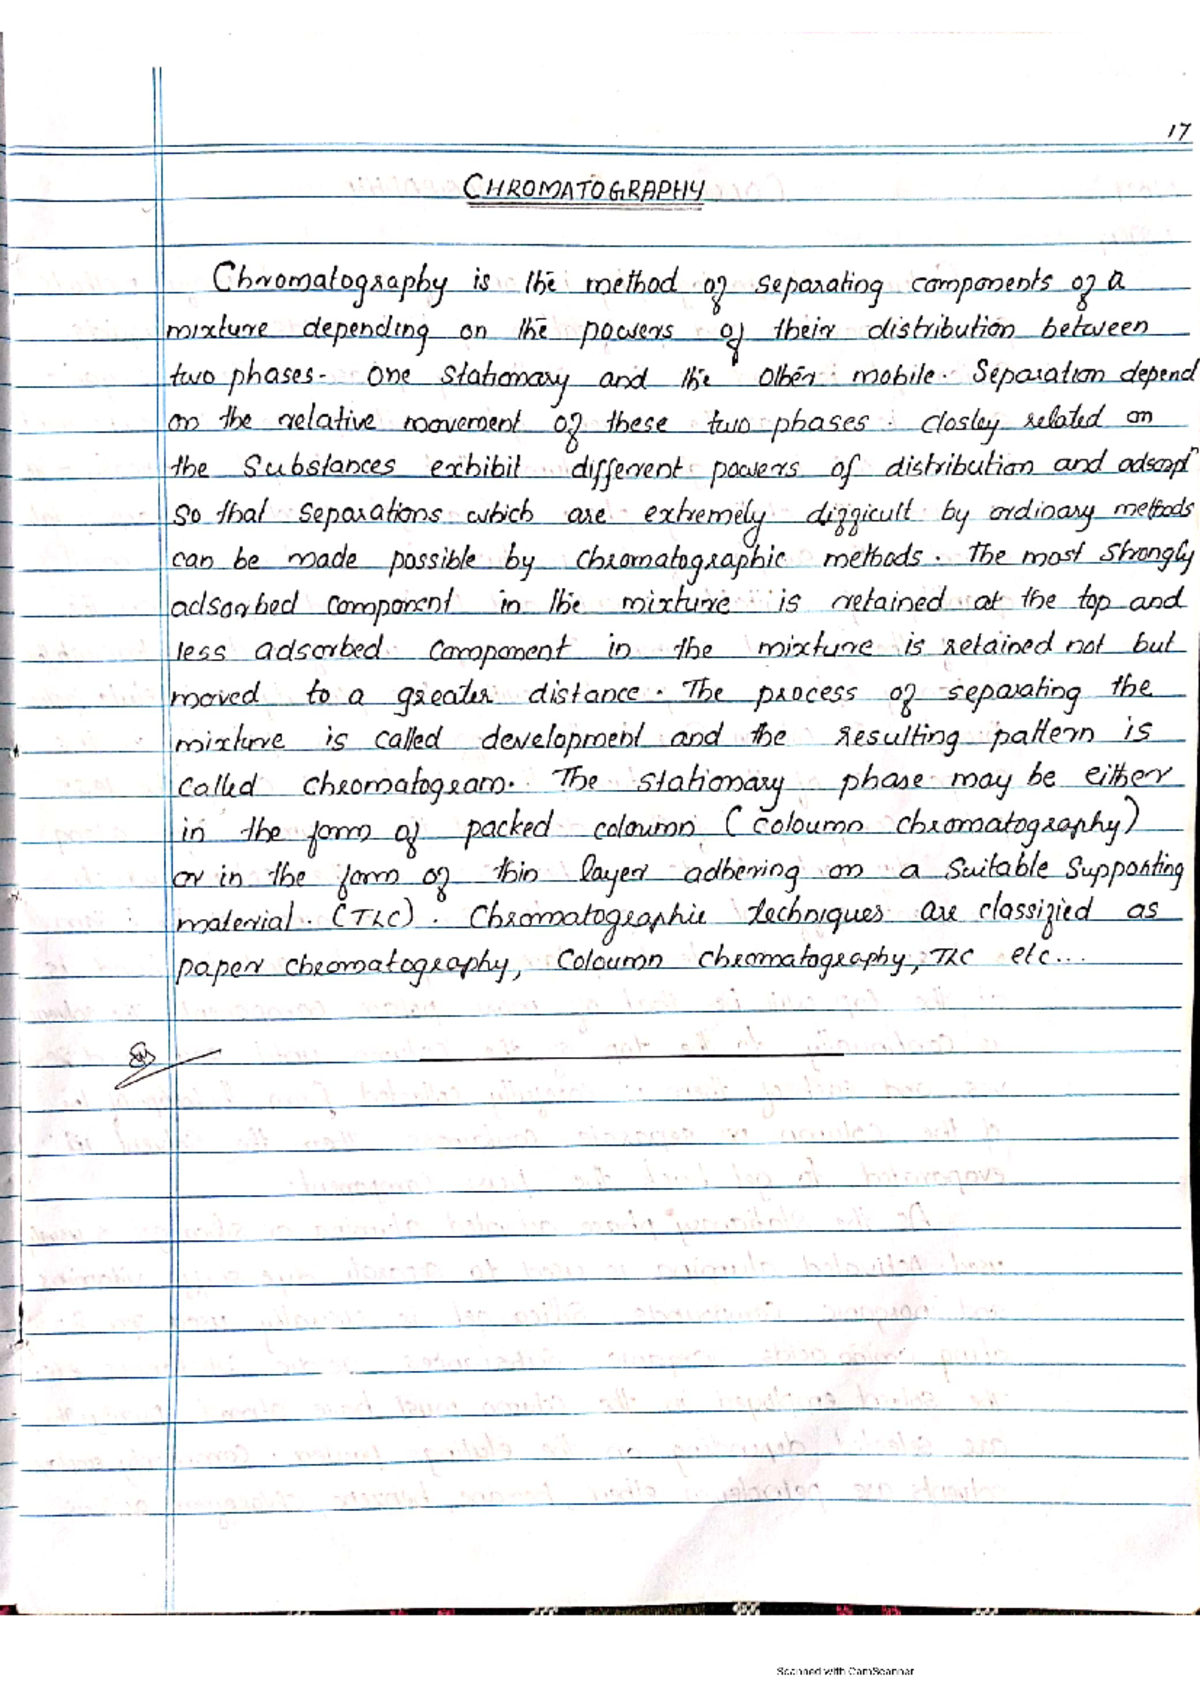 17
CHROMATOGRAPHY
Chromatography is the method of separating components of a
mixture depending on the powers of their distribution between
two phases. One stationary and the other mobile. Separation depend
on the relative movement of these two phases. Closley related on
the Substances exhibit different powers of distribution and adsorptn
so that separations which are extremely difficult by ordinary methods
can be made possible by chromatographic methods. The most strongly
adsorbed component in the mixture is retained at the top and
less adsorbed component in the mixture is retained not but
moved to a greater distance. The process of separating the
mixture is called development and the resulting pattern is
called chromatogram. The stationary phase may be either
in the form of packed coloumn (coloumn chromatography)
or in the form of thin layer adhering on a suitable supporting
material. (TLC). Chromatographic techniques are classified as
paper chromatography, Coloumn chromatography, TLC etc...
Scanned with CamScanner